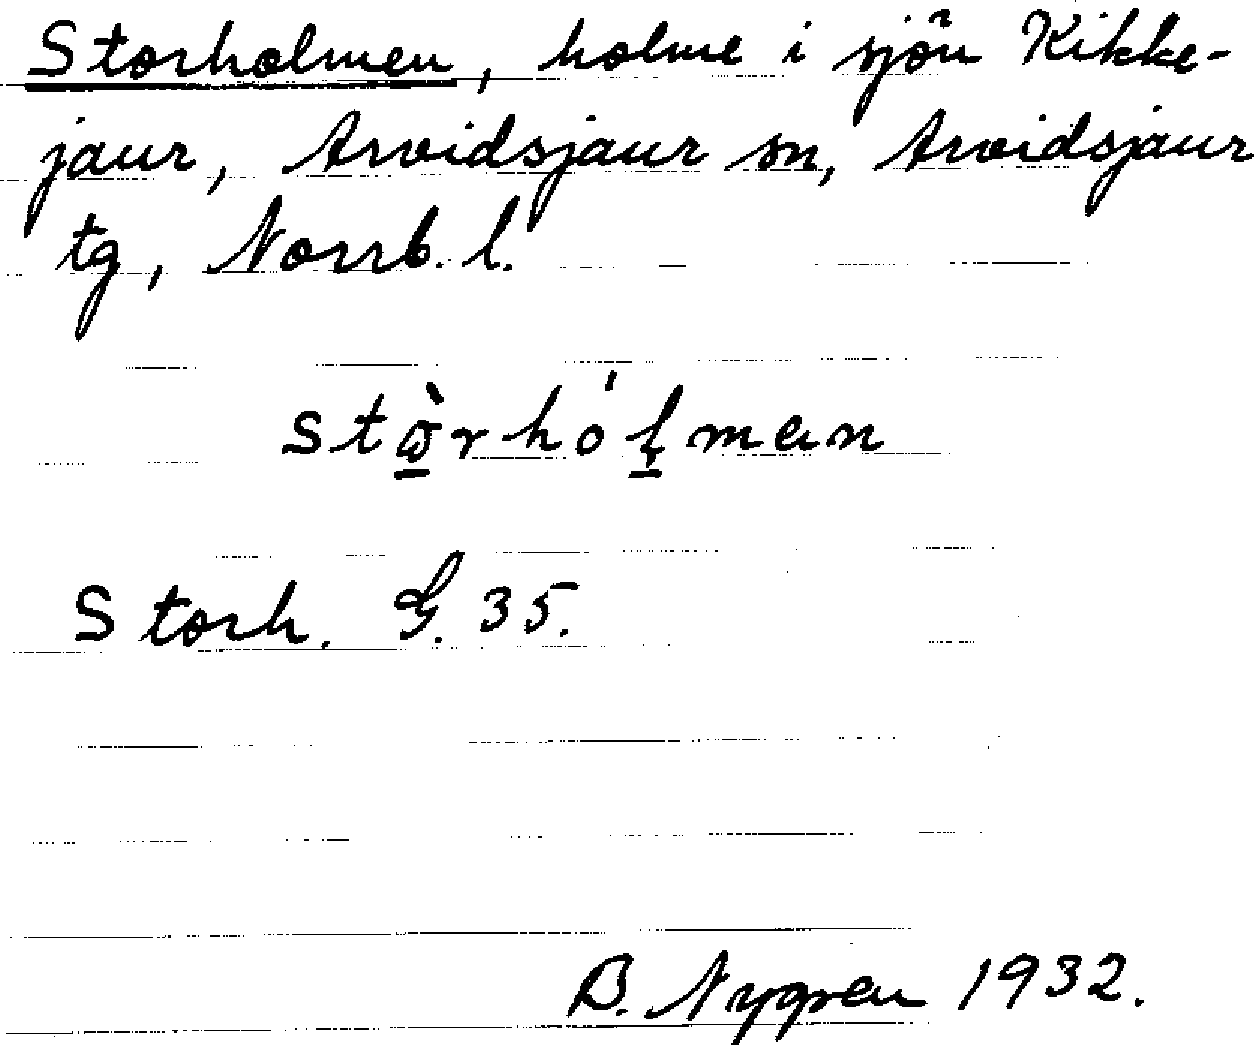 Storholmen, holme i sjön Kikke-
jaur, Arvidsjaur sn, Arvidsjaur
tg, Norrb. l.
stὼ̲rhóḷ̲man
Storh. G. 35.
B. Nygren 1932.